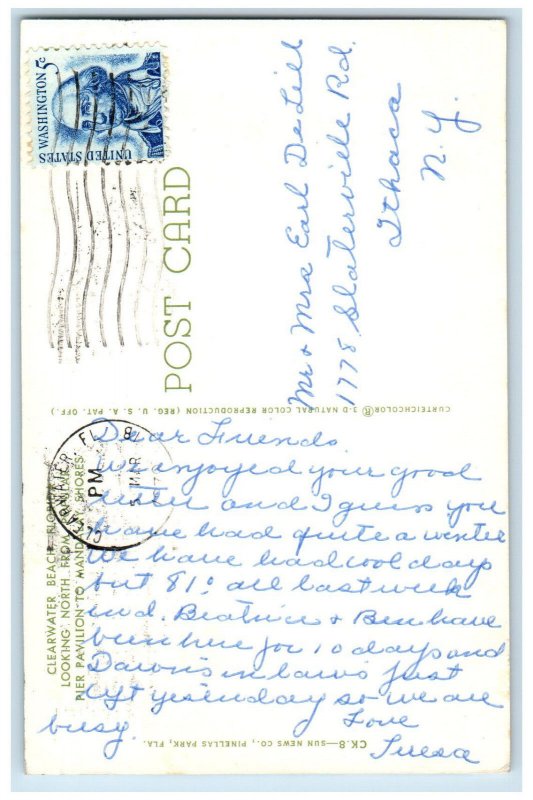 CLEARWATER BEACH, FLORIDA
LOOKING NORTH FROM
PIER PAVILION TO MANDALAY SHORES
Dear Friends
We enjoyed your good
letter and I guess you
have had quite a winter
We have had cool days
but 81° all last week
end. Beatrice & Ben have
been here for 10 days and
Dawn's in laws just
left yesterday so we are
busy.
Love
Teresa
CK.8—SUN NEWS CO., PINELLAS PARK, FLA.
CURTEICHCOLOR® 3-D NATURAL COLOR REPRODUCTION (REG. U. S. A. PAT. OFF.)
POST CARD
WASHINGTON 5c
UNITED STATES
PM
MAR
Mr + Mrs Earl De Lill
1778 Slaterville Rd.
Ithaca
N. Y.